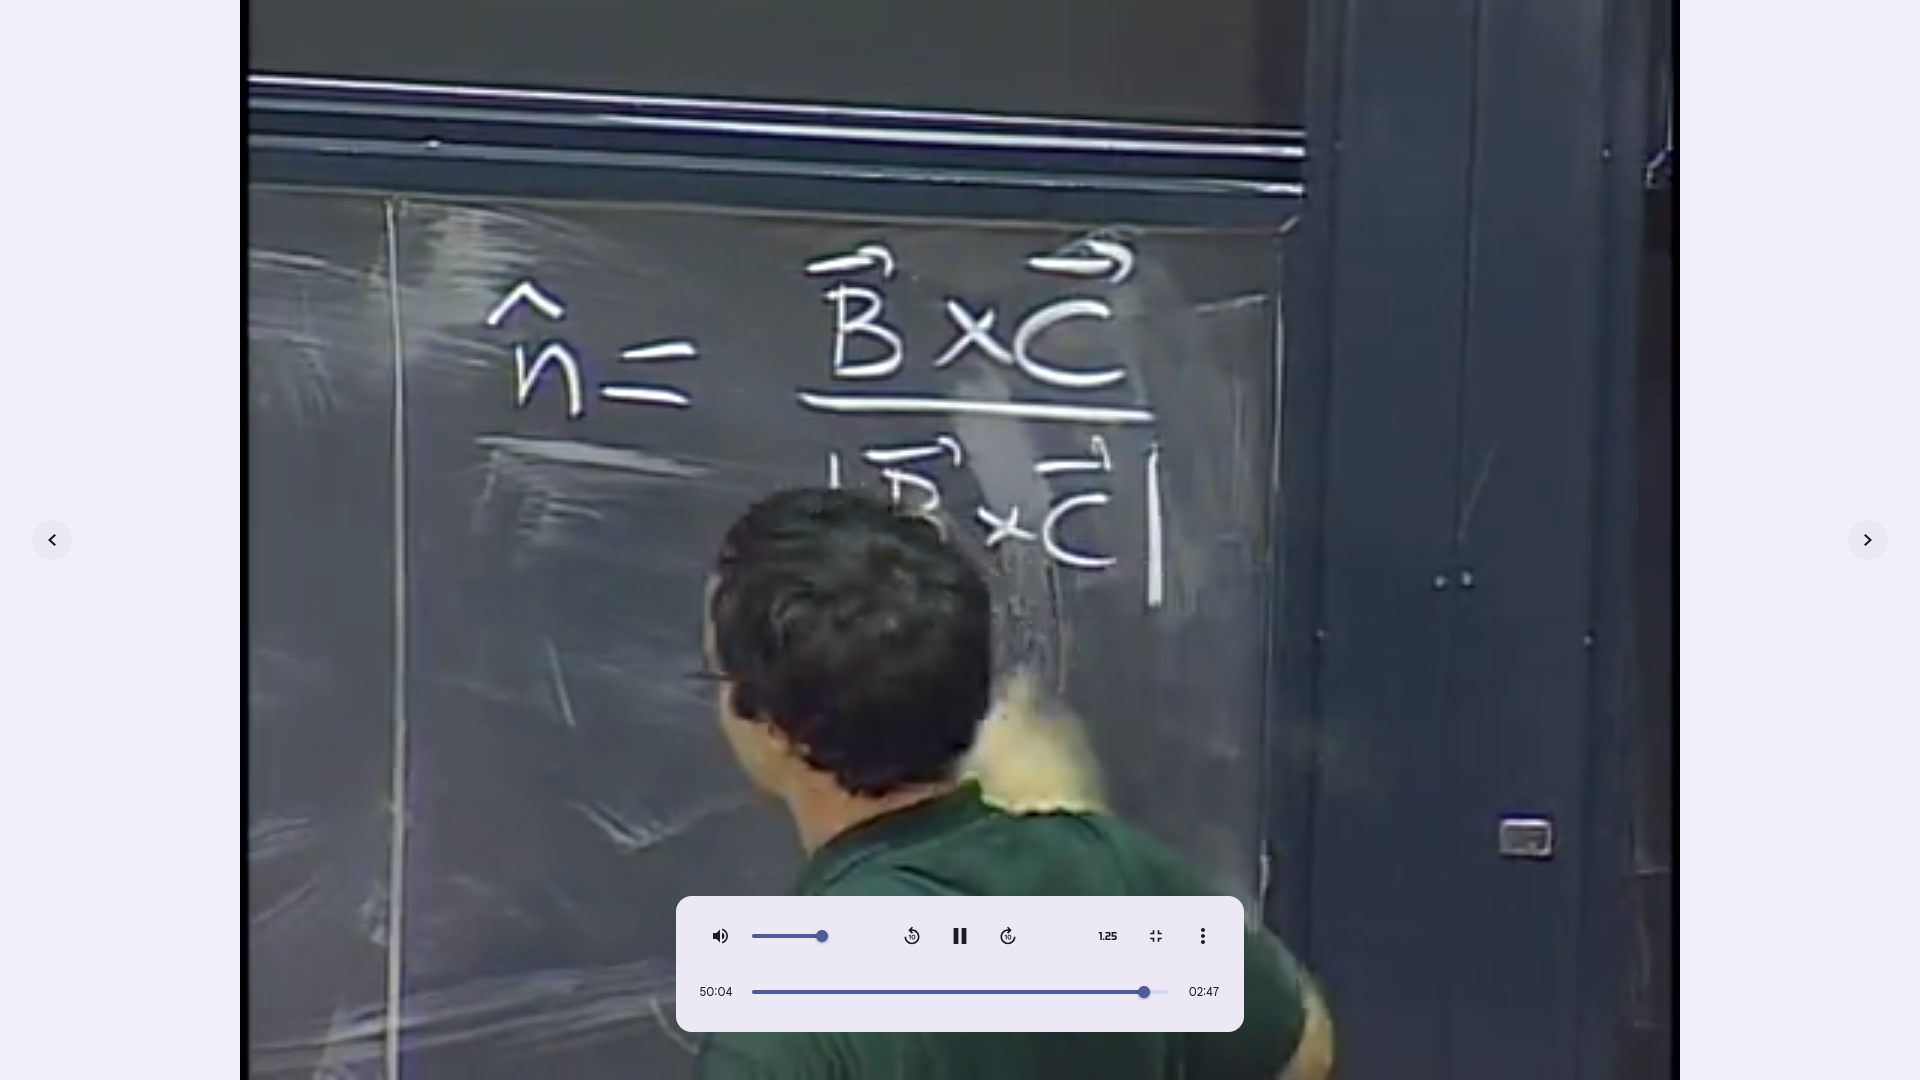 n̂ = B⃗ × C⃗
|B⃗ × C⃗|
10 10 1.25
50:04 02:47